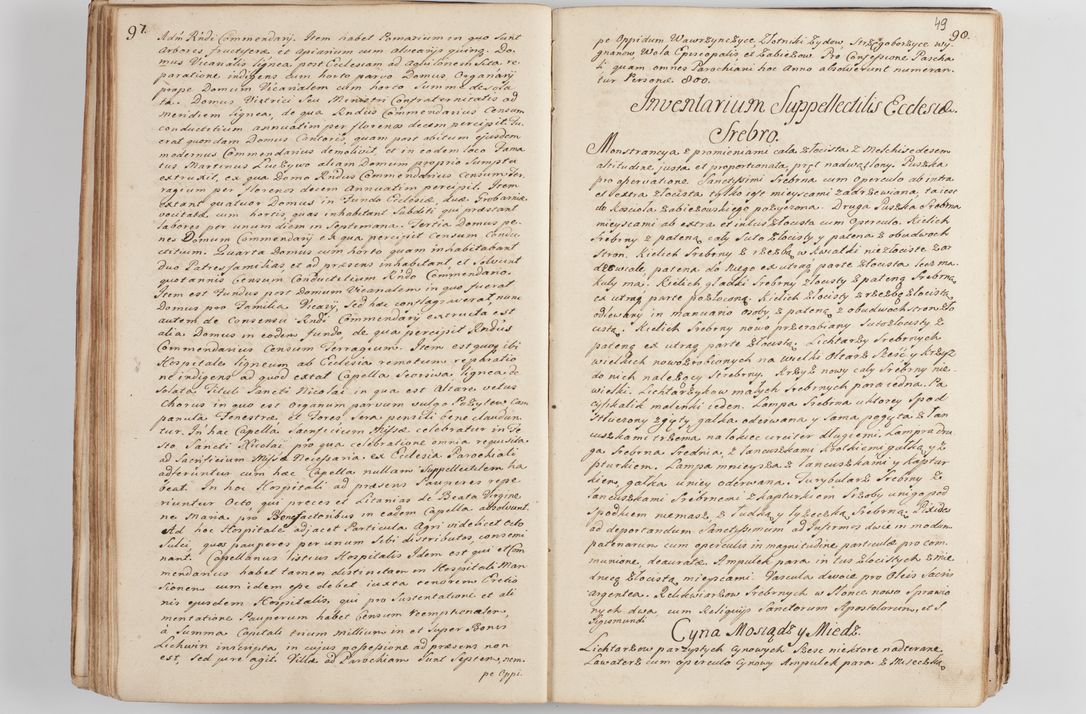 97.
Adm Rndi Commendarij. Item habet Pomarium in quo sunt
arbores fructifera et apiarium cum alvearijs quinq. Do-
mus Vicanalis lignea post Ecclesiam ad aquilonem sita re-
paratione indigens cum horto parvo Domus Organarij
prope Domum Vicanalem cum horto Summe desola
ta. Domus Vietrici Seu Ministri Confraternitatis ad
meridiem lignea, de qua Rndus Commendarius Censum
conductitium annuatim per florenos decem percipit. Fu-
erat quondam Domus Cantoris, quam post abitum ejusdem
modernus Commendarius demolivit, et in eodem loco Fama
tus Martinus aliam Domum proprio Sumptu
extruxit, ex qua Domo Rndus Commendarius Censum ter-
ragium per florenos decem annuatim percipit. Item
extant quatuor Domus in Fundo Ecclesiæ, duæ
cum hortis, quas inhabitant Subditi qui præstant
labores per unum diem in Septimana. Tertia Domus pe-
nes Domum Commendarij ex qua percipit Censum Condu-
ctitium. Quarta Domus cum horto quam inhabitabant
duo Patres familias et ad præsens inhabitant et Solvunt
quotannis Censum Conductitium Rndo Commendario.
Item est Fundus post Domum Vicanalem in quo fuerat
Domus pro Familia Vicarij Sed hæc conflagraverat nunc
autem de Consensu Rndi Commendarij extructa est
alia Domus in eodem fundo de qua percipit Rndus
Commendarius Censum Terragium. Item est quoq ibi
Hospitale ligneum ab Ecclesia remotum
ne indigens ad quod extat Capella Seorsiva lignea de
Solata Tituli Sancti Nicolai in qua est Altare vetus
Chorus in quo est Organum parvum vulgo Pozytew Cam
panula Fenestræ et Fores Sera pensili bene claudun
tur. In hac Capella Sacrificium Missæ celebratur in Fe-
sto Sancti Nicolai pro qua celebratione omnia requisita
ad Sacrificium Missæ Necessaria ex Ecclesia Parochiali
adferuntur cum hæc Capella nullam Suppellectilem ha
beat. In hoc Hospitali ad præsens Pauperes repe
riuntur Octo, qui preces et Litanias de Beata Virgine
na Maria pro Benefactoribus in eadem Capella absolvunt.
Ad hoc Hospitale adjacet Particula Agri videlicet Octo
Sulci, quos pauperes per unum Sibi distributos consemi
nant. Capellanus istius Hospitalis Idem est qui et Com
mendarius habet tamen distinctam in Hospitali Man
Sionem cum idem esse debet iuxta tenorem Erectio
nis ejusdem Hospitalis, qui pro Sustentatione et ali
mentatione Pauperum habet Censum reemptionalem
à Summa Capitali trium millium in et Super Bonis
Lichwin inscripta in cujus possessione ad præsens non
est, Sed jure agit. Villæ ad Parochiam Sunt Septem, nem-
pe Oppi.
49
90.
pe Oppidum Wawrzynczyce, Złotniki Zydow, Stręgoborzyce wy
gnanow Wola Episcopalis et Zabiezow. Pro Confessione Pascha
li quam omnes Parochiani hoc Anno absolverunt numeran
tur Personæ 800.
Inventarium Suppellectilis Ecclesiæ
Srebro.
Monstrancya z promieniami cała złocista z Melchisedesem
altitudine justa, et proportionata, pręt nadwzlony. Puszka
pro asservatione Sanctissimi Srebrna cum operculo ab intra
et extra złocista tylko igle mieyscami zadrzewiana, ta iest
do Koscioła Zabiezowskiego pozyczona. Druga Puszka Srebrna
mieyscami ab extra et intus złocista cum operculo. Kielich
Srebrny z pateną cały Suto złocisty y patena z obudwoch
Stron. Kielich Srebrny z rzezbą w kwiatki niezłociste
patena do niego ex utraq parte złocista Iest ma
kuły ma. Kielich gładki Srebrny złocisty z pateną Srebrną
ex utraq parte pozłoconą. Kielich złocisty z rzezbą złocistą
odlewany in manuano osoby z pateną z obudwoch stron zło
cistą. Kielich Srebrny nowo przerabiany Suto złocisty z
pateną ex utraq parte złocistą. Lichtarzy Srebrnych
wielkich nowo zrobionych na Wielki Ołtarz Szesc y Krzyz
do nich nalezący Srebrny. Krzyz nowy cały Srebrny nie-
wielki. Lichtarzykow małych Srebrnych para iedna. Pa
cyfikalik malenki ieden. Lampa Srebrna u ktorey Spod
Stłuczony zgięty, gałka oderwana y Sama pogięta z łan
cuszkami trzema na łokiec ucziter długiemi. Lampa dru
ga Srebrna Srednia, z łancuszkami krotkiemi gałką y ka
pturkiem. Lampa mnieysza z łancuszkami y kaptur
kiem, gałka u niey oderwana. Turybularz Srebrny z
łancuszkami Srebrnemi z kapturkiem Srzoby u nigo pod
Spodkiem niemasz, z Łudką y Łyzeczką Srebrną. Pixides
ad deportandum Sanctissimum ad Infirmos dwie in modum
patenarum cum operculis in magnitudine particulæ pro com
munione, deauratæ. Ampułek para in tus złocistych z mie
dnicą złocistą mieyscami. Vascula dwoie pro Oleis Sacris
argentea. Relikwiarzow Srebrnych w Słonce nowo Sprawio
nych dwa cum Reliquijs Sanctorum Apostolorum, et S.
Sigismundi
Cyna Mosiądz y Miedz.
Lichtarzow parzystych Cynowych Szesc niektore nadterane
Lavaterz cum operculo Cynowy Ampułek para z Miseczką